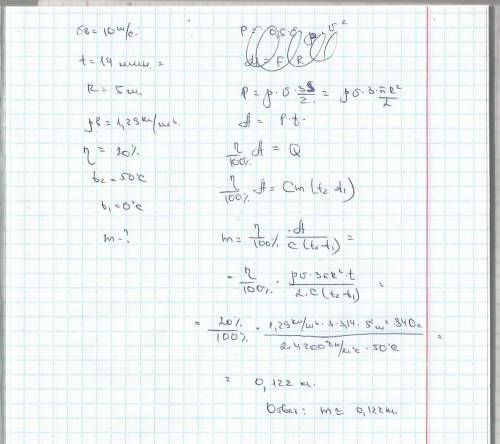 υв = 10 м/с.
t = 14 мин. =
R = 5 м.
ρв = 1,29 кг/м³.
η = 20%
t₂ = 50°C
t₁ = 0°C
m - ?
P = 0,5 ρ υ²
F R
P = ρ · υ · 3S/2 = ρυ · 3 · πR²/2
A = P · t.
η/100% A = Q
η/100% A = Cm (t₂ - t₁)
m = η/100% · A/C(t₂ - t₁) =
= η/100% · ρυ · 3πR² · t/2 · C (t₂ - t₁) =
= 20%/100% · 1,29 кг/м³ · 3 · 3,14 · 5² м² · 840 с/2 · 4200 Дж/кг°C · 50°C =
= 0,122 кг.
Ответ: m ≈ 0,122 кг